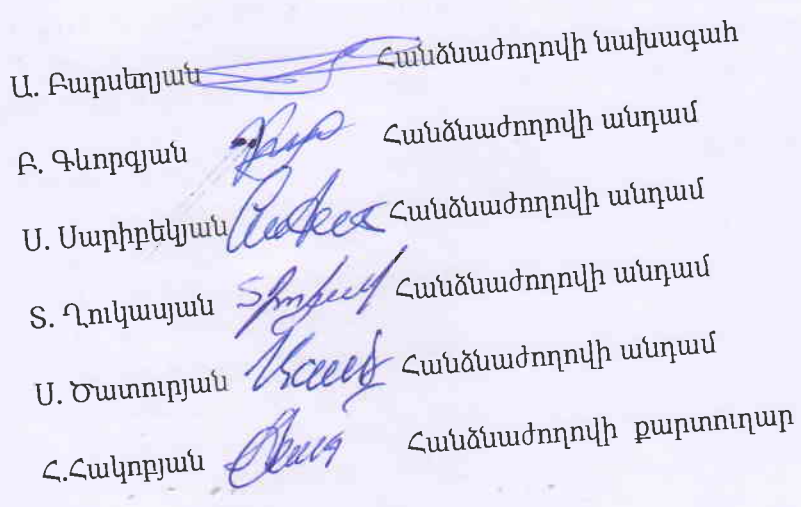 Ա. Բարսեղյան Հանձնաժողովի նախագահ
Բ. Գևորգյան Հանձնաժողովի անդամ
Ս. Սարիբեկյան Հանձնաժողովի անդամ
Տ. Ղուկասյան Հանձնաժողովի անդամ
Ս. Ծատուրյան Հանձնաժողովի անդամ
Հ.Հակոբյան Հանձնաժողովի քարտուղար